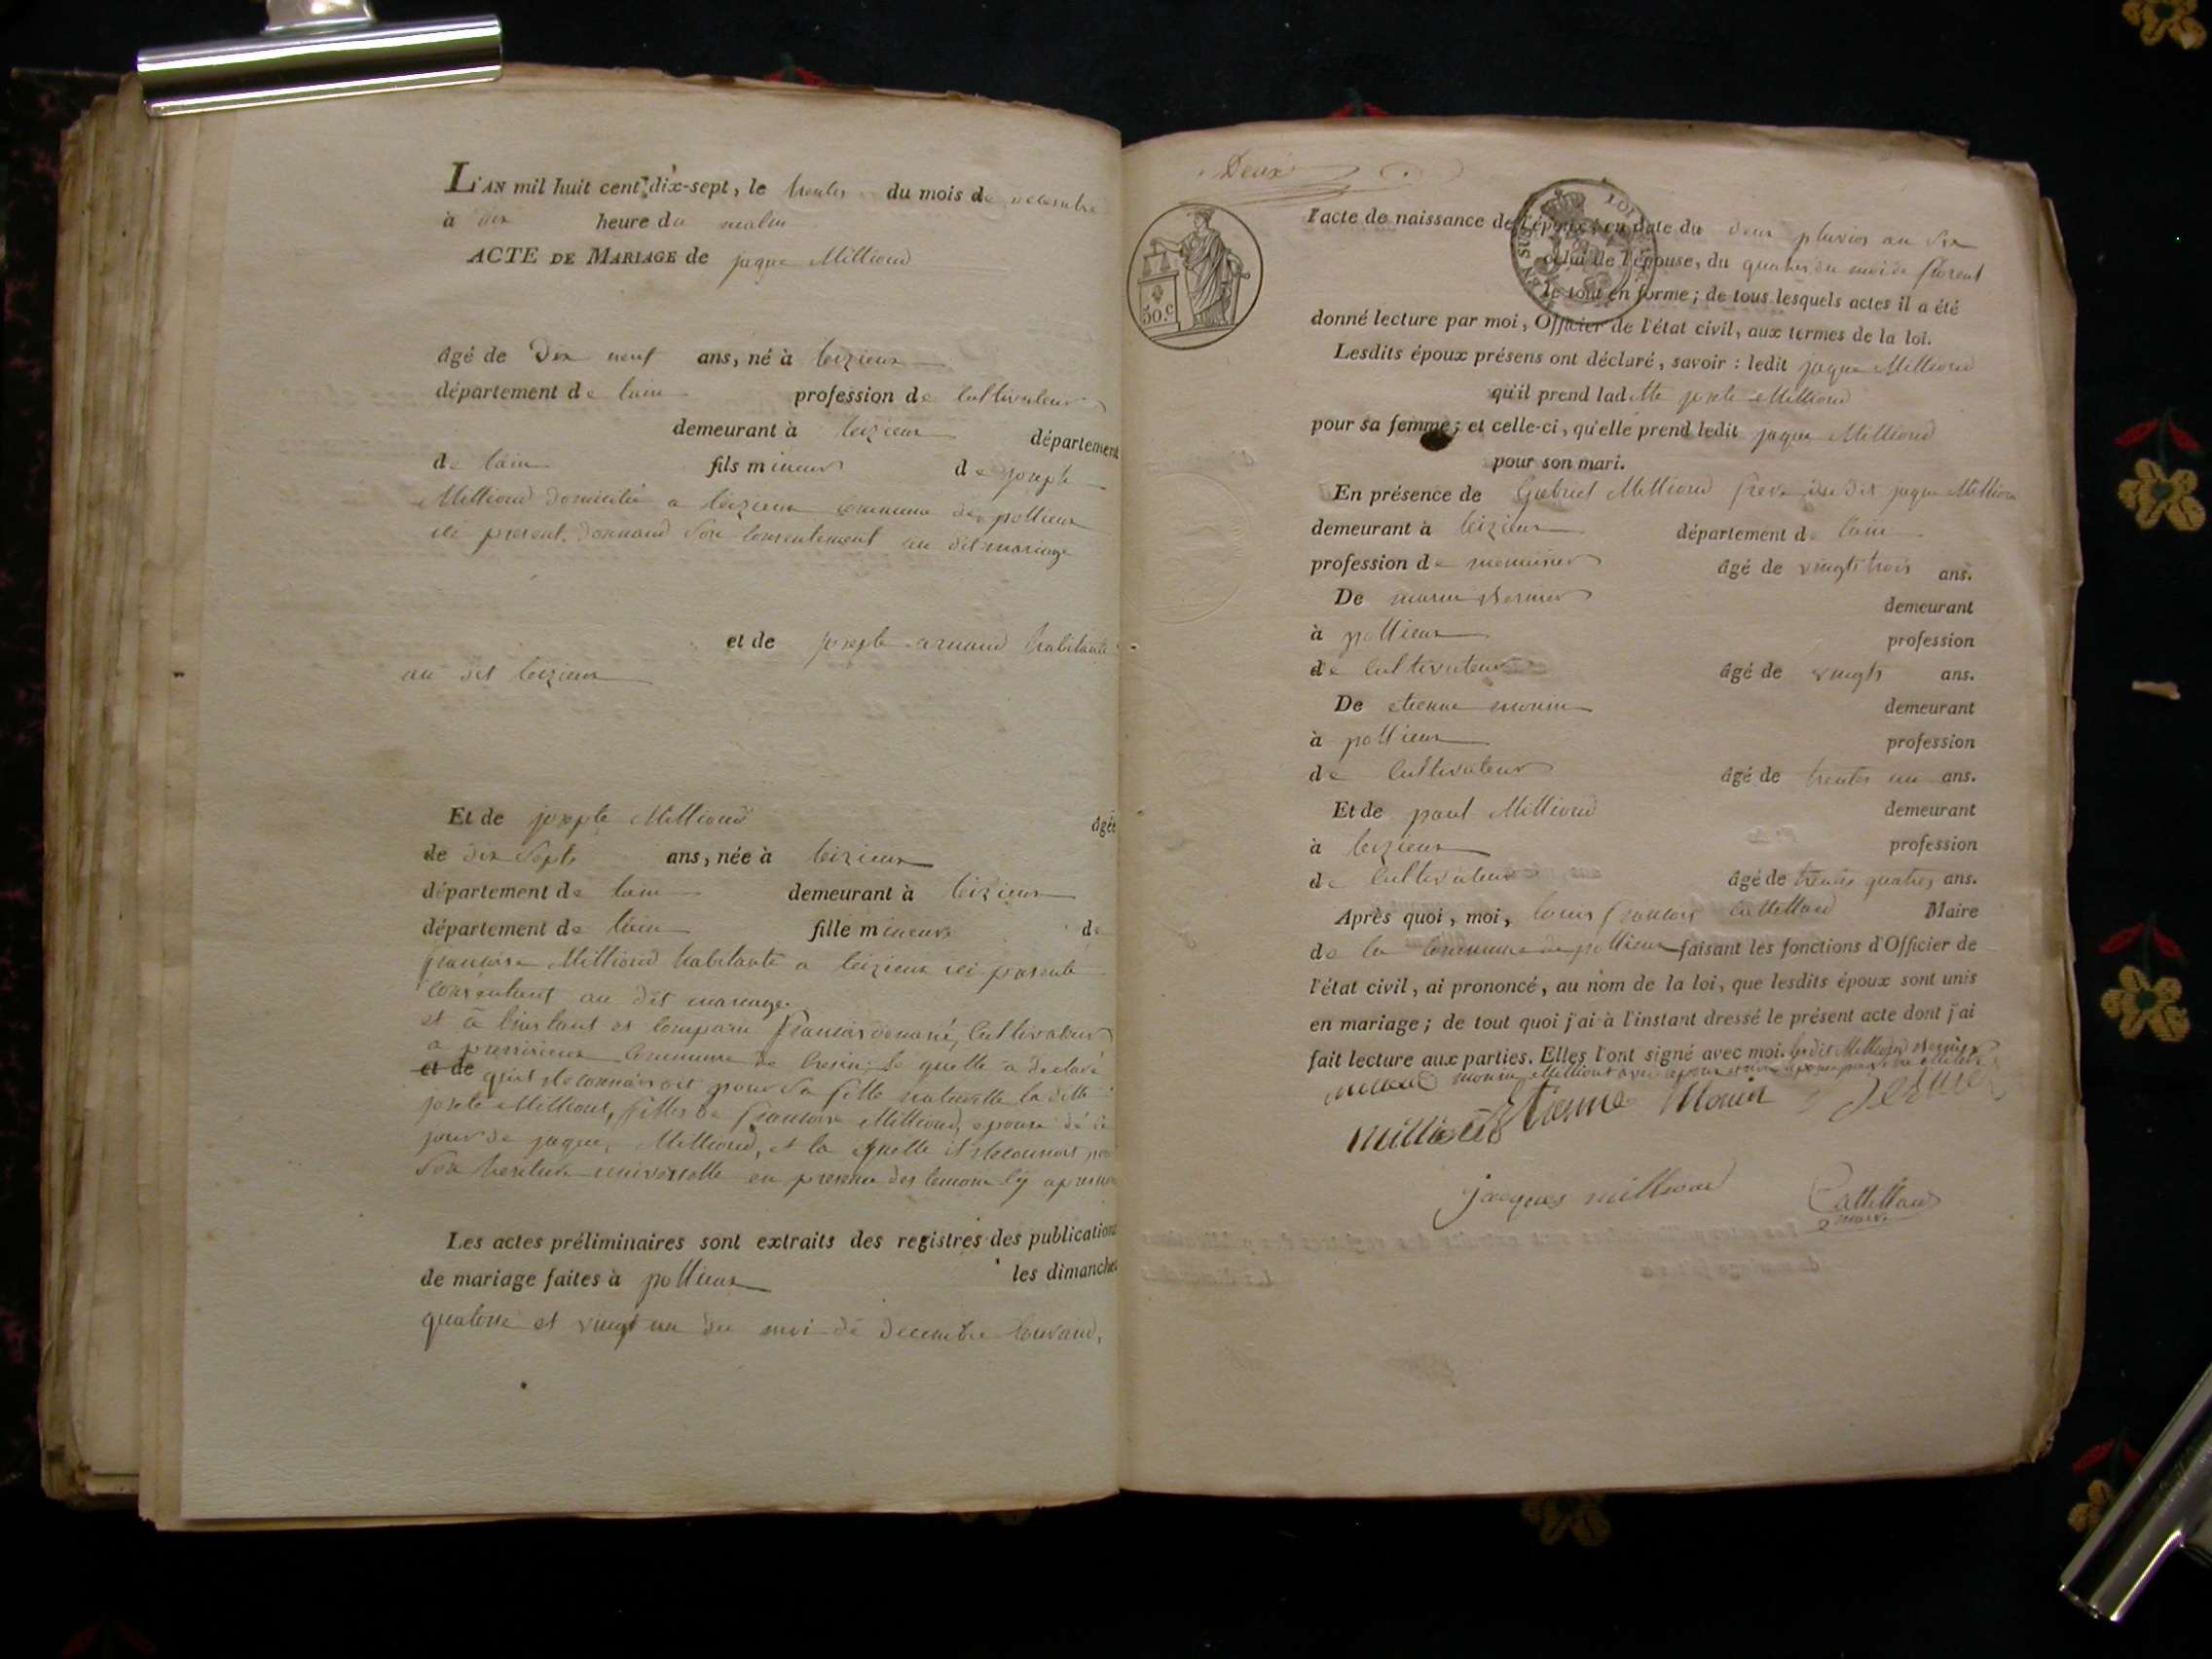 L'AN mil huit cent dix-sept, le trentes du mois de decembre
à dix heure du matin
ACTE DE MARIAGE de jaque Milliond
âgé de Dix neuf ans, né à
département de lain profession de Cultivateur
demeurant à département
de lain fils mineur de joseph
Milliond domicilié a commune de pollieux
ici present. donnand son consentement au dit mariage
et de josephte arnaud habitante
au dit
Et de josephte Milliond âgée
de dix septs ans, née à
département de lain demeurant à
département de lain fille mineure de
francoise Milliond habitante a ici presente
consentent au dit mariage.
et a linstant es comparu francois Cultivateur
a commune de le quelle a declaré
et de quil reconnaissoit pour sa fille naturelle la ditte
josete Milliond, filles de francoise Milliond, epouse dé ce
jour de jaque Milliond, et la quelle il reconnoit pour
son heritiere universelle en presence des temoins cy apres
Les actes préliminaires sont extraits des registres des publications
de mariage faites à pollieux les dimanches
quatorse et vingt un du moi de decembre Courand,
Deux
50.c
LOI
EN SUS
l'acte de naissance de l'époux, en date du deux pluvios an six
celui de l'épouse, du quatres du moi de floreal
le tout en forme; de tous lesquels actes il a été
donné lecture par moi, Officier de l'état civil, aux termes de la loi.
Lesdits époux présens ont déclaré, savoir : ledit jaque Milliond
qu'il prend laditte josete Milliond
pour sa femme; et celle-ci, qu'elle prend ledit jaque Milliond
pour son mari.
En présence de Gabriel Milliond frere du dit jaque Milliond
demeurant à département de lain
profession de menuisier âgé de vingts trois ans.
De demeurant
à pollieux profession
de Cultivateur âgé de vingts ans.
De etienne monin demeurant
à pollieux profession
de Cultivateur âgé de trentes un ans.
Et de paul Milliond demeurant
à profession
de Cultivateur âgé de trentes quatres ans.
Après quoi, moi, louis francois Cattelland Maire
de la commune de pollieux faisant les fonctions d'Officier de
l'état civil, ai prononcé, au nom de la loi, que lesdits époux sont unis
en mariage; de tout quoi j'ai à l'instant dressé le présent acte dont j'ai
fait lecture aux parties. Elles l'ont signé avec moi. le dit Milliond
monin
Etienne Monin
jacques milliond
Cattelland
maire